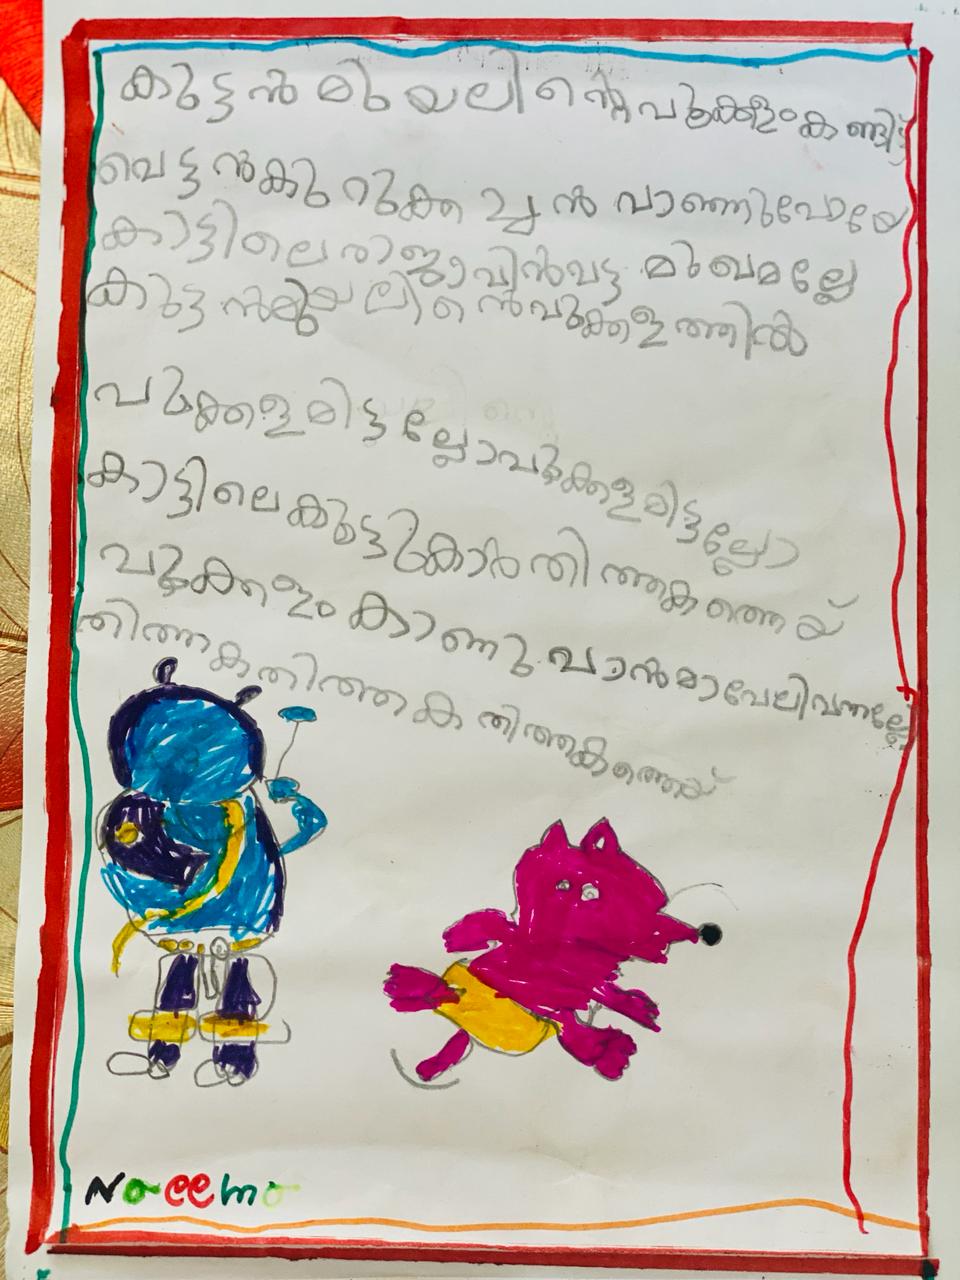 കുട്ടൻ മുയലിന്റെ പൂക്കളം കണ്ടിട്ട്
വെട്ടൻ കുറുക്കച്ചൻ വാണ്ണുപോയേ
കാട്ടിലെ രാജാവിൻ വട്ട മുഖമല്ലേ
കുട്ടൻ മുയലിൻെ പൂക്കളത്തിൽ
പൂക്കളമിട്ടല്ലോ പൂക്കളമിട്ടല്ലോ
കാട്ടിലെ കൂട്ടുകാർ തിത്തകത്തെയ്
പൂക്കളം കാണു വാൻ മാവേലി വന്നല്ലേ
തിത്തക തിത്തക തിത്തകത്തെയ്
Naeema